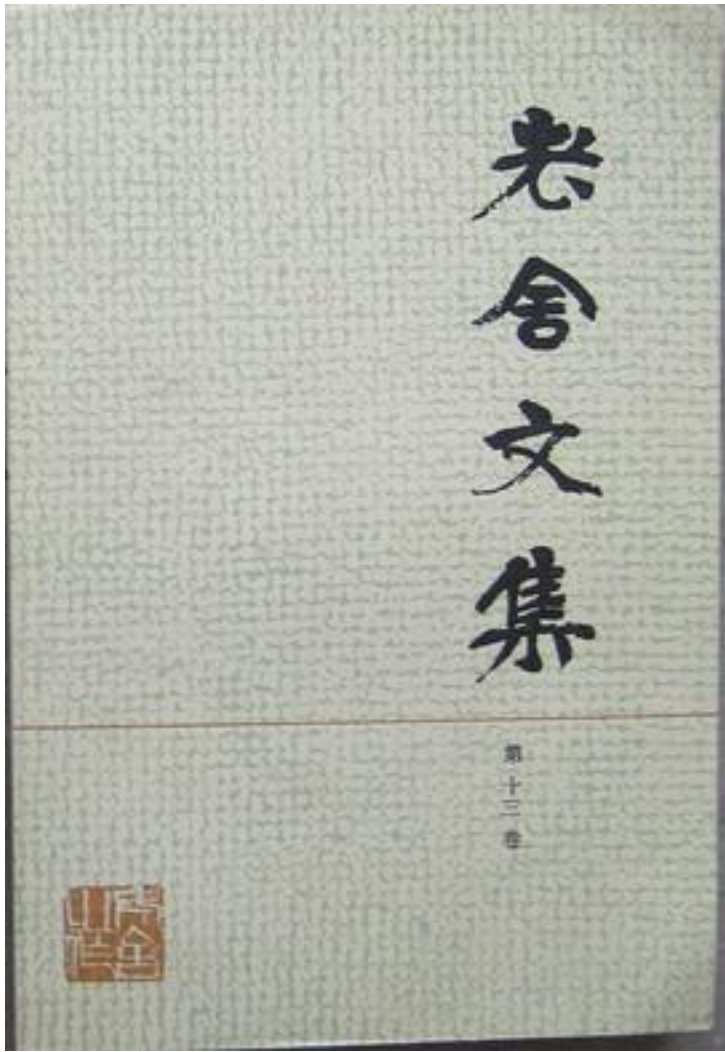 老舍文集
第十三卷